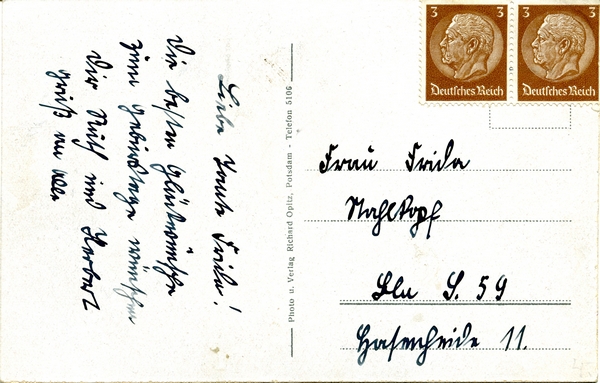 Liebe Tante Frida!
Die besten Glückwünsche
zum Geburtstage wünschen
Dir Ruth und Herbert
Gruß an alle
Photo u. Verlag Richard Opitz, Potsdam - Telefon 5106
3 3
Deutsches Reich Deutsches Reich
Frau Frida
Stahlkopf
Bln S. 59
Hasenheide 11.